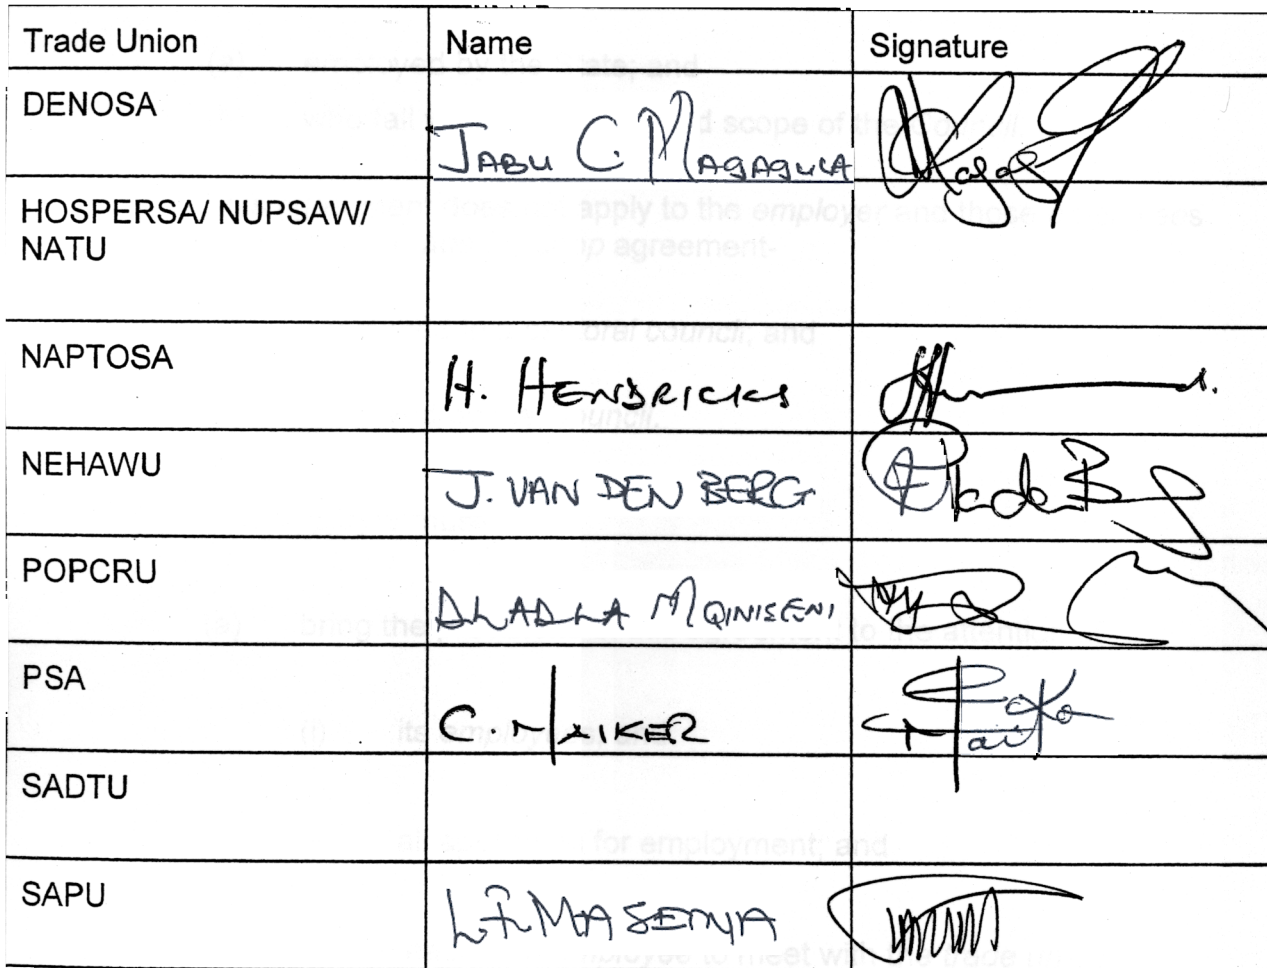 Trade Union Name Signature
DENOSA JABU C. MAGAGULA
HOSPERSA/ NUPSAW/
NATU
NAPTOSA H. HENDRICKS
NEHAWU J. VAN DEN BERG
POPCRU DLADLA MQINISENI
PSA C. NAIKER
SADTU
SAPU L.F. MASENYA